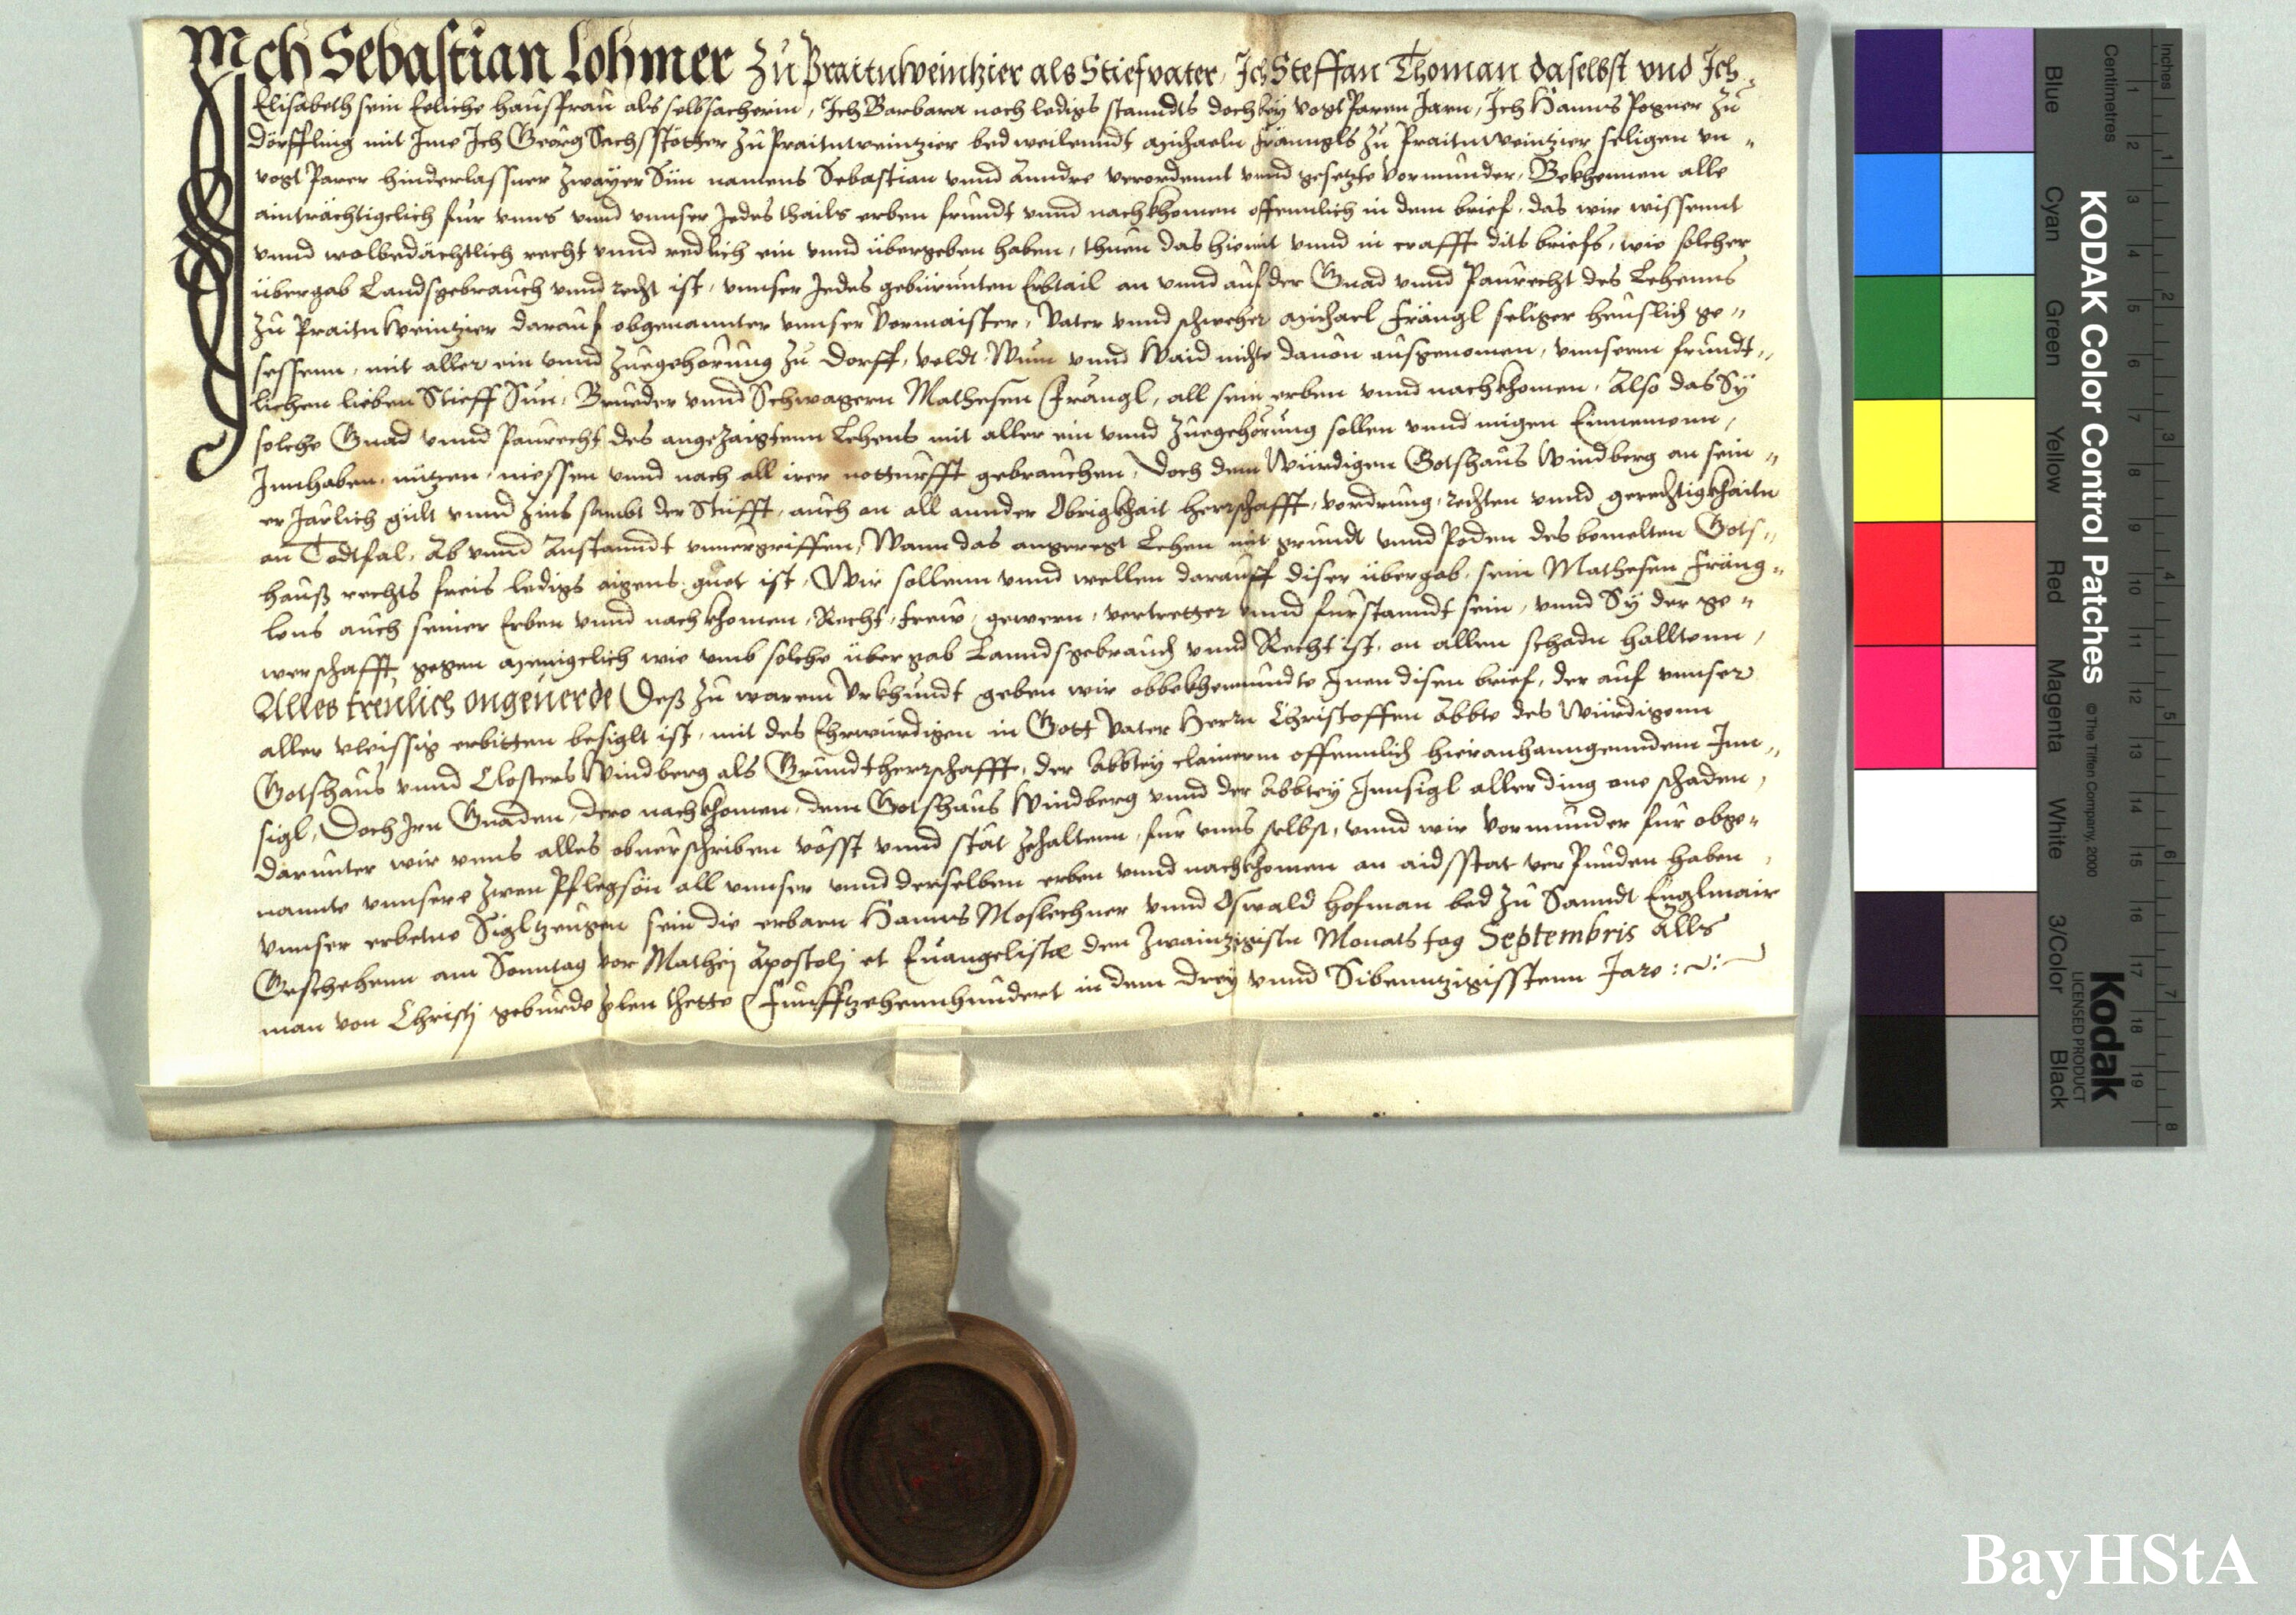 Ich Sebastian Lohmer Zu Praitnweintzier als Stiefvater, Ich Steffan Thoman daselbst vnd Ich
Elisabeth sein Eeliche hausfrau als selbsacherin, Ich Barbara noch ledigs stanndts doch bey vogtParen Jarn, Ich Hanns Pogner zu
Dörffling mit Ime Ich Georg Sachsstötter zu Praitnweintzier bed weilenndt Michaeln Fränngls zu Praitnweintzier seligen vn„
vogtParer hinderlassner zwayer Sün namens Sebastian vnnd Anndre verordennt vnnd gesetzte Vormünder, Bekhennen alle
ainträchtigclich für vnns vnnd vnnser Jedes thails erben fründt vnnd nachkhomen offenntlich in dem brief, das wir wissennt
vnnd wolbedächtlich recht vnnd redlich ein vnnd übergeben haben, thuen das hiemit vnnd in crafft dits briefs, wie solcher
übergab Landsgebrauch vnnd recht ist, vnnser Jedes gebürunten Erbtail an vnnd auf der Gnad vnnd Paurecht des Lehenns
zu Praitnweintzier darauf obgenannter vnnser Vormaister, Vater vnnd schweher Michael Frängl seliger heuslich ge„
sessenn, mit aller ein vnnd zuegehörung zu Dorff, veldt, Wun vnnd Waid nichts dauon ausgenomen, vnnserm fründt„
lichen lieben Stieff Sun, Brueder vnnd Schwagern Mathesen Frängl, all sein erben vnnd nachkhomen, Also das Sÿ
solche Gnad vnnd Paurecht des angezaigtenn Lehens mit aller ein vnnd zuegehörung sollen vnnd mügen Einnemenn,
Innhaben, nutzen, niessen vnnd nach all irer notturfft gebrauchen, Doch dem Würdigen Gotshaus Windberg an sein„
er Järlich gült vnnd zins sambt der Stüfft, auch an all annder Obrigkhait herrschafft, vordrung, rechten vnnd gerechtigkhaitn
an Todtfal, Ab vnnd Anstanndt vnuergriffen, Wann das angeregt Lehen mit grundt vnnd Poden des bemelten Gots„
hauß rechts freis ledigs aigens guet ist, Wir sollenn vnnd wellen darauff diser übergab, sein Mathesen Fräng„
lens auch seiner Erben vnnd nachkhomen, Recht, Trew, gewern, vertretter vnnd fürstanndt sein, vnnd Sÿ der ge„
werschafft gegen Menigclich wie vmb solche übergab Lanndsgebrauch vnnd Recht ist, an allen schadn halltenn,
Alles treulich ongeuerde Deß zu warem Vrkhundt geben wir obbekhennundte Inen disen brief, der auf vnnser
aller vleissig erbitten besiglt ist, mit des Ehrwürdigen in Gott Vater Herrn Christoffen Abbte des Würdigenn
Gotshaus vnnd Closters Windberg als Grundtherrschafft, der Abbtey clainerm offenntlich hieranhanngenndem Inn„
sigl, Doch Irn Gnaden, dero nachkhomen, dem Gotshaus Windberg vnnd der Abbtey Innsigl allerding one schaden,
darunter wir vnns alles obuerschriben vösst vnnd stät zehaltenn, für vnns selbst, vnnd wir Vormünder für obge„
nannte vnnsere zwen Pflegsön all vnnser vnnd derselben erben vnnd nachkhomen an aidsstat verPunden haben,
Vnnser erbetne Siglzeugen sein die erbarn Hanns Moslechner vnnd Oswald Hofman bed zu Sanndt Englmair
Geschehenn am Sonntag vor Mathej Apostolj et Euangelistæ den Zwaintzigistn Monats tag Septembris Alls
man von Christj geburde zelen thette Funfftzehennhundert in dem drey vnnd Sibenntzigisstenn Jare :~:~
Inches
Centimetres
1 2 3 4 5 6 7 8
1 2 3 4 5 6 7 8 9 10 11 12 13 14 15 16 17 18 19
KODAK Color Control Patches © The Tiffen Company, 2000
Kodak
LICENSED PRODUCT
Blue Cyan Green Yellow Red Magenta White 3/Color Black
BayHStA